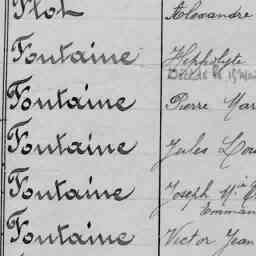 Flot Alexandre
Fontaine Hippolyte
Décédé le 15
Fontaine Pierre Mar
Fontaine Jules Lou
Fontaine Joseph Mie
Emman
Fontaine Victor Jean